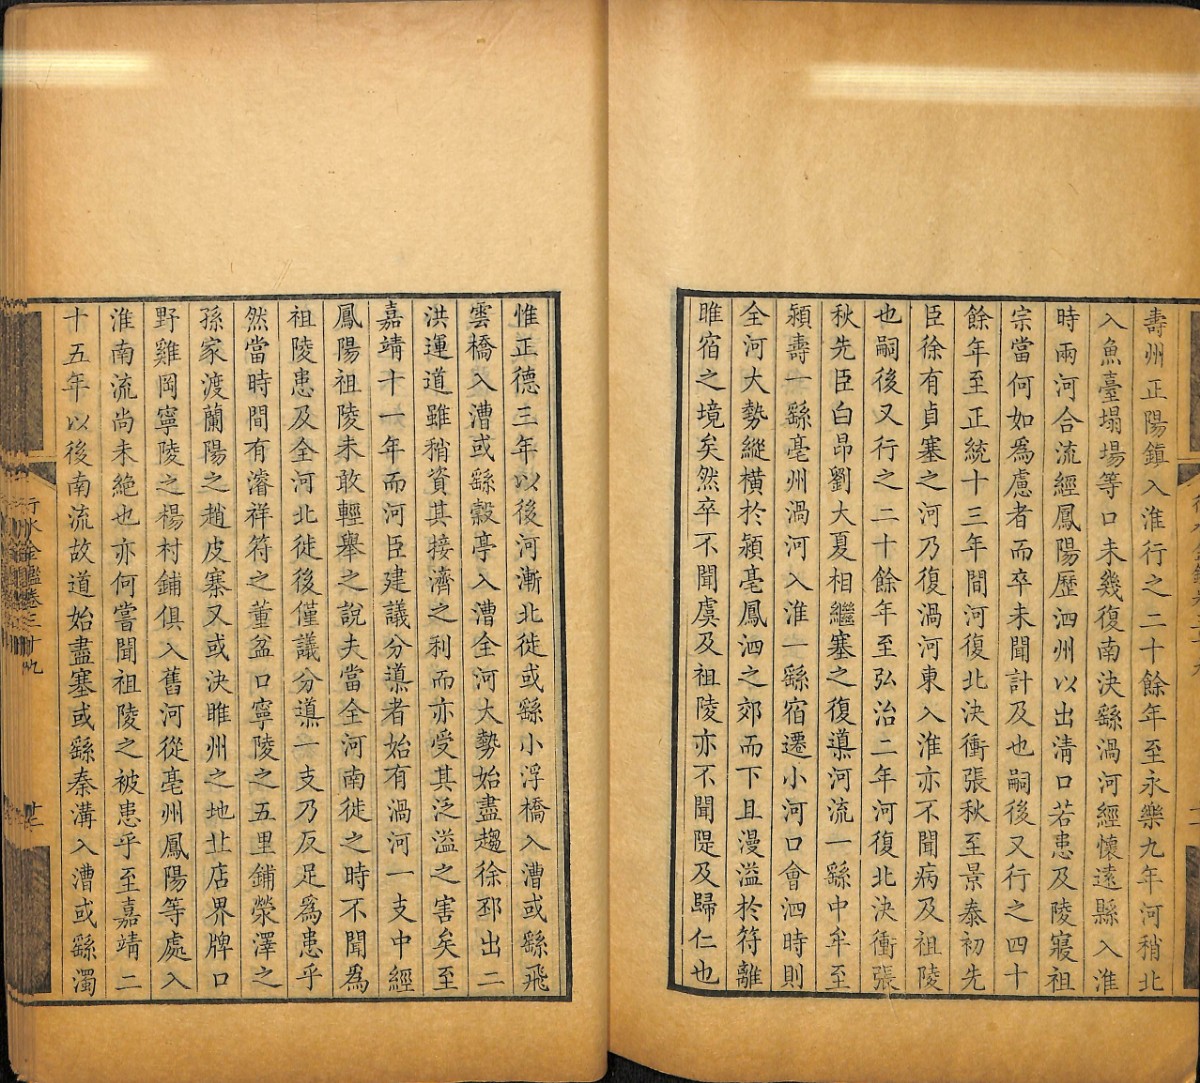 壽州正陽鎮入淮行之二十餘年至永樂九年河稍北
入魚臺塌場等口未幾復南決繇渦河經懷遠縣入淮
時兩河合流經鳳陽歷泗州以出清口若患及陵寢祖
宗當何如為慮者而卒未聞計及也嗣後又行之四十
餘年至正統十三年間河復北決衝張秋至景泰初先
臣徐有貞塞之河乃復渦河東入淮亦不聞病及祖陵
也嗣後又行之二十餘年至弘治二年河復北決衝張
秋先臣白昂劉大夏相繼塞之復導河流一繇中牟至
潁壽一繇亳州渦河入淮一繇宿遷小河口會泗時則
全河大勢縱橫於潁亳鳳泗之郊而下且漫溢於符離
睢宿之境矣然卒不聞虞及祖陵亦不聞隄及歸仁也
惟正德三年以後河漸北徙或繇小浮橋入漕或繇飛
雲橋入漕或繇穀亭入漕全河大勢始盡趨徐邳出二
洪運道雖稍資其接濟之利而亦受其泛溢之害矣至
嘉靖十一年而河臣建議分導者始有渦河一支中經
鳳陽祖陵未敢輕舉之說夫當全河南徙之時不聞為
祖陵患及全河北徙後僅議分導一支乃反足為患乎
然當時間有濬祥符之董盆口寧陵之五里鋪滎澤之
孫家渡蘭陽之趙皮寨又或決睢州之地丘店界牌口
野雞岡寧陵之楊村鋪俱入舊河從亳州鳳陽等處入
淮南流尚未絕也亦何嘗聞祖陵之被患乎至嘉靖二
十五年以後南流故道始盡塞或繇秦溝入漕或繇濁
行水金鑑卷三十九